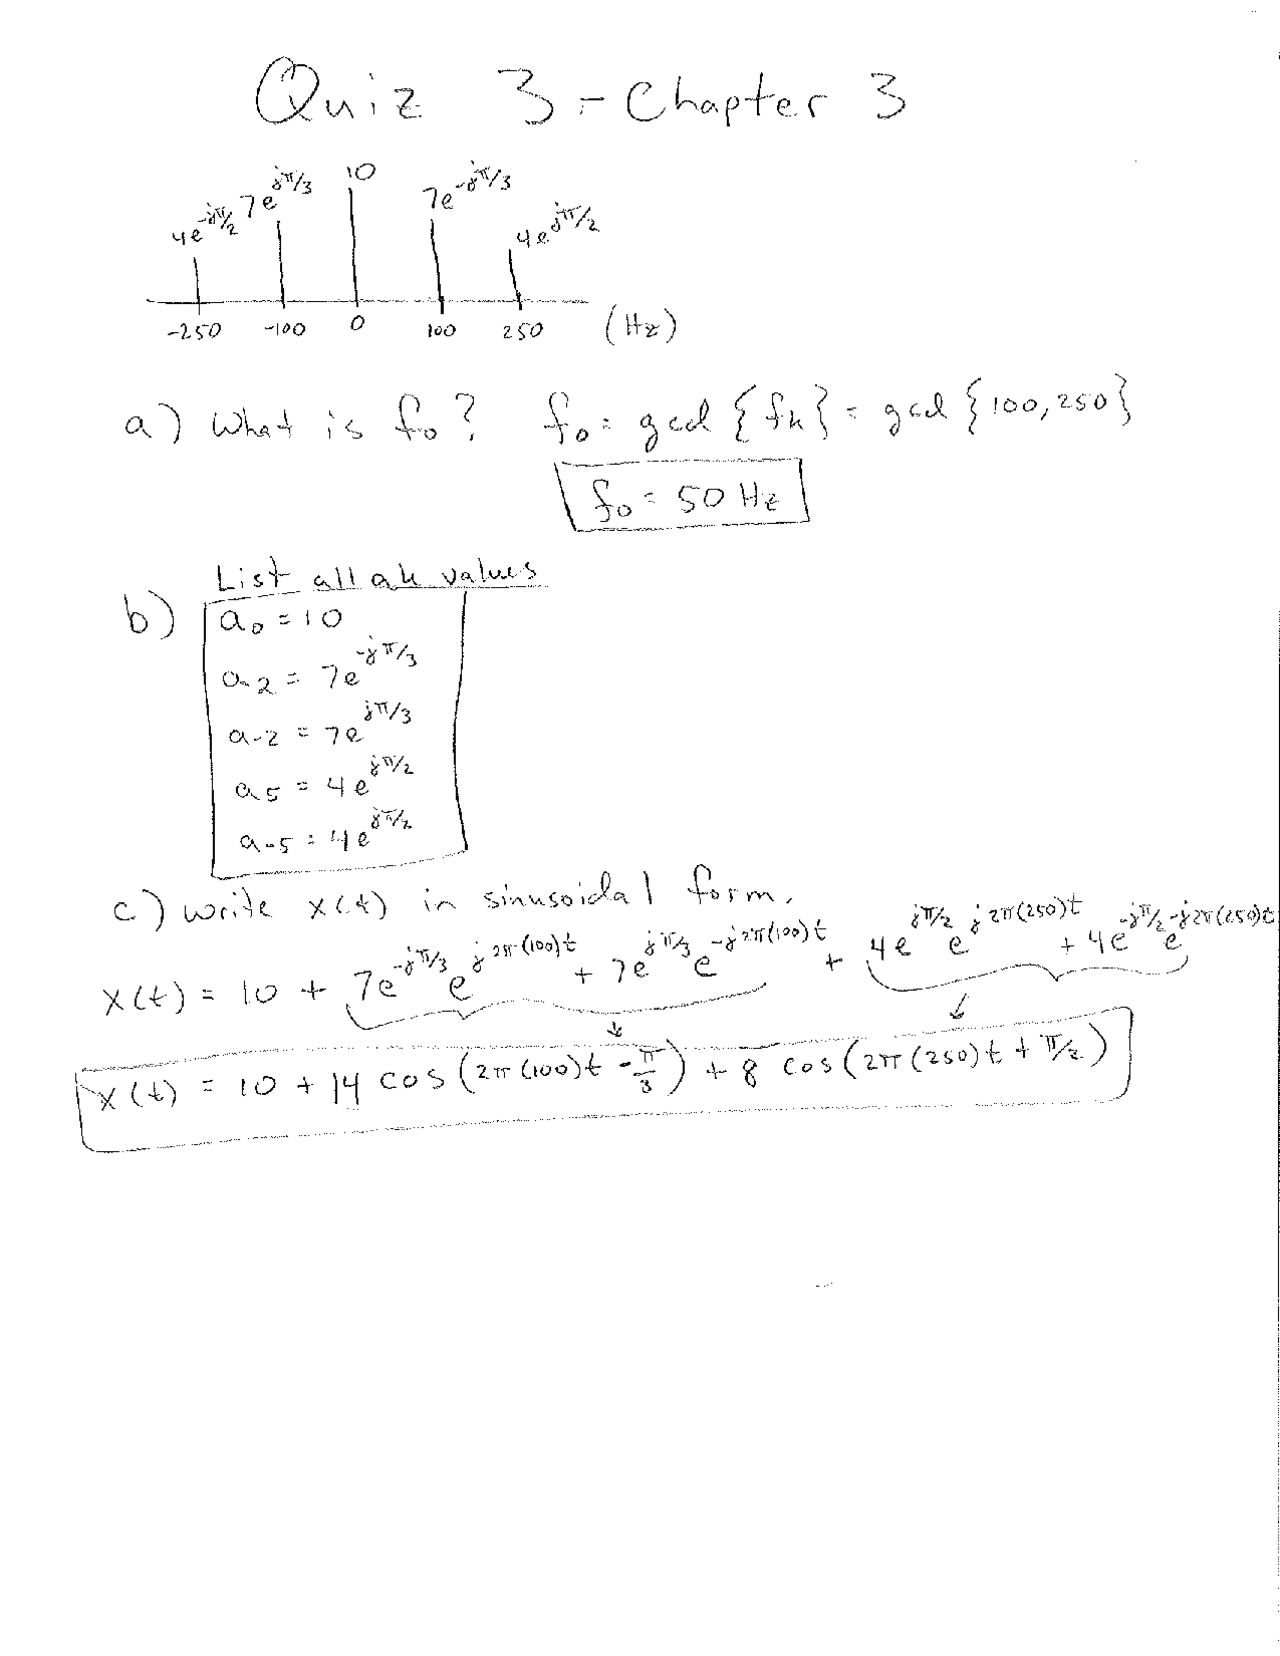 Quiz 3 - Chapter 3
4e^{-jπ/2} 7e^{jπ/3} 10 7e^{-jπ/3} 4e^{jπ/2}
-250 -100 0 100 250 (Hz)
a) What is f₀? f₀ = gcd {fₖ} = gcd {100, 250}
f₀ = 50 Hz
List all aₖ values
b) a₀ = 10
a₂ = 7e^{-jπ/3}
a₋₂ = 7e^{jπ/3}
a₅ = 4e^{jπ/2}
a₋₅ = 4e^{jπ/2}
c) write x(t) in sinusoidal form.
x(t) = 10 + 7e^{-jπ/3} e^{j2π(100)t} + 7e^{jπ/3} e^{-j2π(100)t} + 4e^{jπ/2} e^{j2π(250)t} + 4e^{-jπ/2} e^{-j2π(250)t}
x(t) = 10 + 14 cos(2π(100)t - π/3) + 8 cos(2π(250)t + π/2)